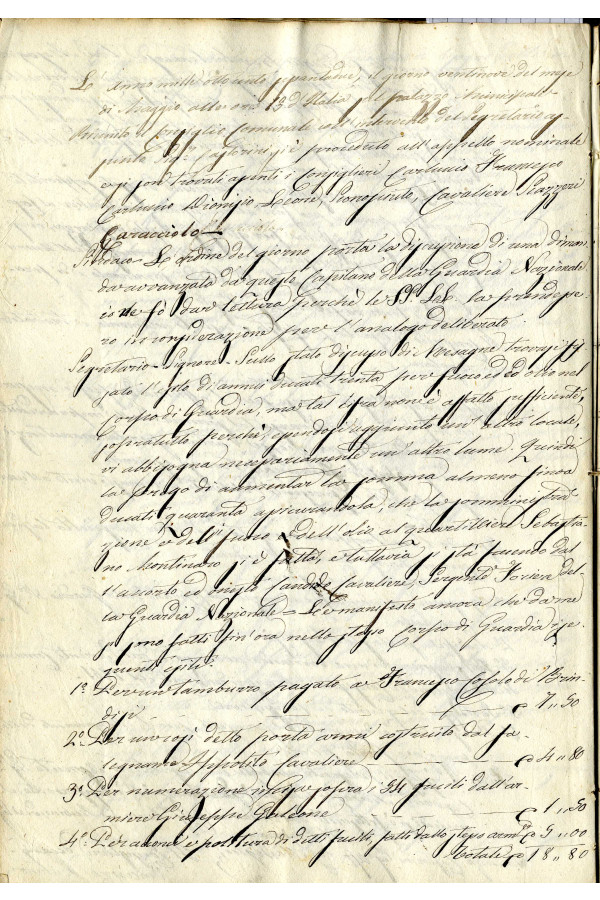 L'Anno mille otto cento sessantuno, il giorno ventinove del mese
di Maggio alle ore 13 d'Italia nel palazzo Municipale
Riunito il Consiglio Comunale coll'intervento del Segretario ag-
giunto Sig. si è proceduto all'appello nominale
e si son trovati assenti i Consiglieri Carluccio Francesco
Carluccio Dionisio Leone, Cavaliere
Caracciolo
Sindaco - Lo ordine del giorno porta la discussione di una diman-
da avvanzata da questo Capitano della Guardia Nazionale
io ne fo dar lettura perchè le SS. LL. la prendesse-
ro in considerazione pere l'analogo deliberato.
Segretario - Signori - Sullo stato discusso di Mesagne trovasi fis-
sato l'esito di annui ducati trenta per fuoco ed olio nel
Corpo di Guardia, ma tal cifra non è affatto sufficiente,
sopratutto perchè, essendosi aggiunto un'altro locale,
vi abbisogna necessariamente un'altro lume. Quindi
la prego di aumentar la somma almeno fino a
ducati quaranta assicurandola, che la somministra-
zione del fuoco e dell'olio al quartiere Sebastia-
no Montinaro si è fatta, e tuttavia si sta facendo dal-
l'accorto ed onesto Candido Cavaliere, Sergente Foriere del-
la Guardia Nazionale - Le manifesto ancora che da me
si sono fatti fin'ora nello stesso Corpo di Guardia i se-
guenti esiti:
1º Per un tamburro pagato a Francesco Cofolo di Brin-
disi D 7,, 50
2º Per un così detto porta armi costruito dal fa-
legname Ippolito Cavaliere D 4,, 80
3º Per numerazione incisa sopra i 54 fucili dall'ar-
miere Giuseppe Galeone D 1,, 50
4º Per acconci e politura di detti fucili, fatti dallo stesso arm.re D 5,, 00
Totale D 18,, 80